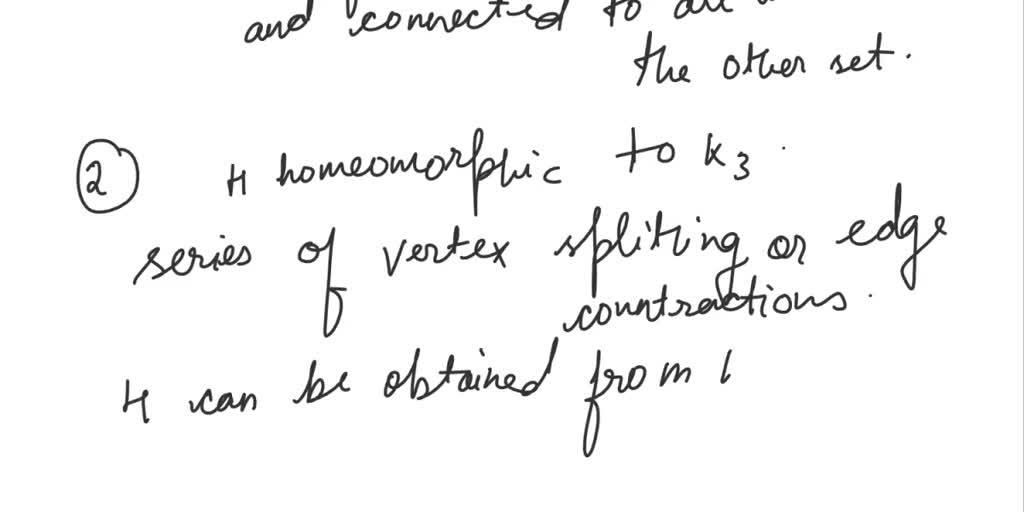 and connected to all
the other set.
② H homeomorphic to K3.
series of vertex spliting or edge
countractions.
H can be obtained from